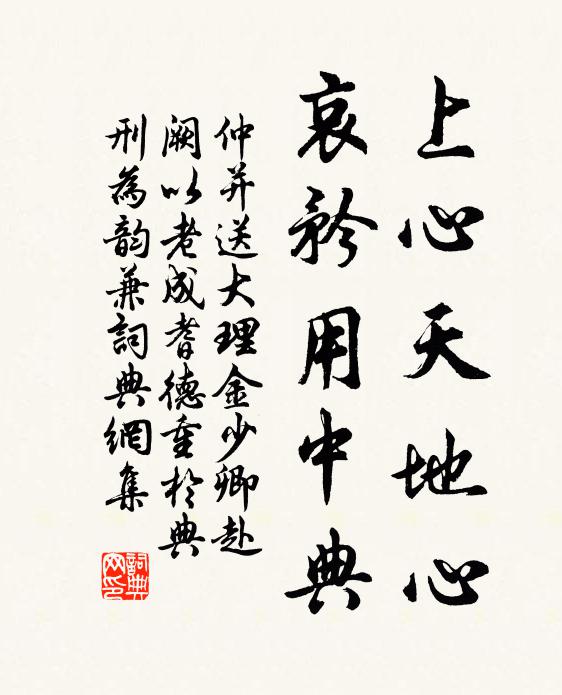 上心天地心
哀矜用中典
仲并送大理金少卿赴
闕以老成耆德重於典
刑為韵兼詞典網集
詞典网印